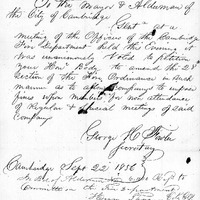 To the Mayor & Aldermen of
the City of Cambridge
Gents at a
meeting of the Officers of the Cambridge
Fire Department held this Evening it
was unanimously Voted to petition
your Hon Body to amend the 28th
Section of the Fire Ordinance in such
manner as to allow Companys to impose
fines upon members for non attendance
of Regular & Special meetings of said
Company
George H. Foster
Secretary
Cambridge Sept 22 1856
In Bd of Aldermen Ref'd to
Committee on the Fire Department
City Clk